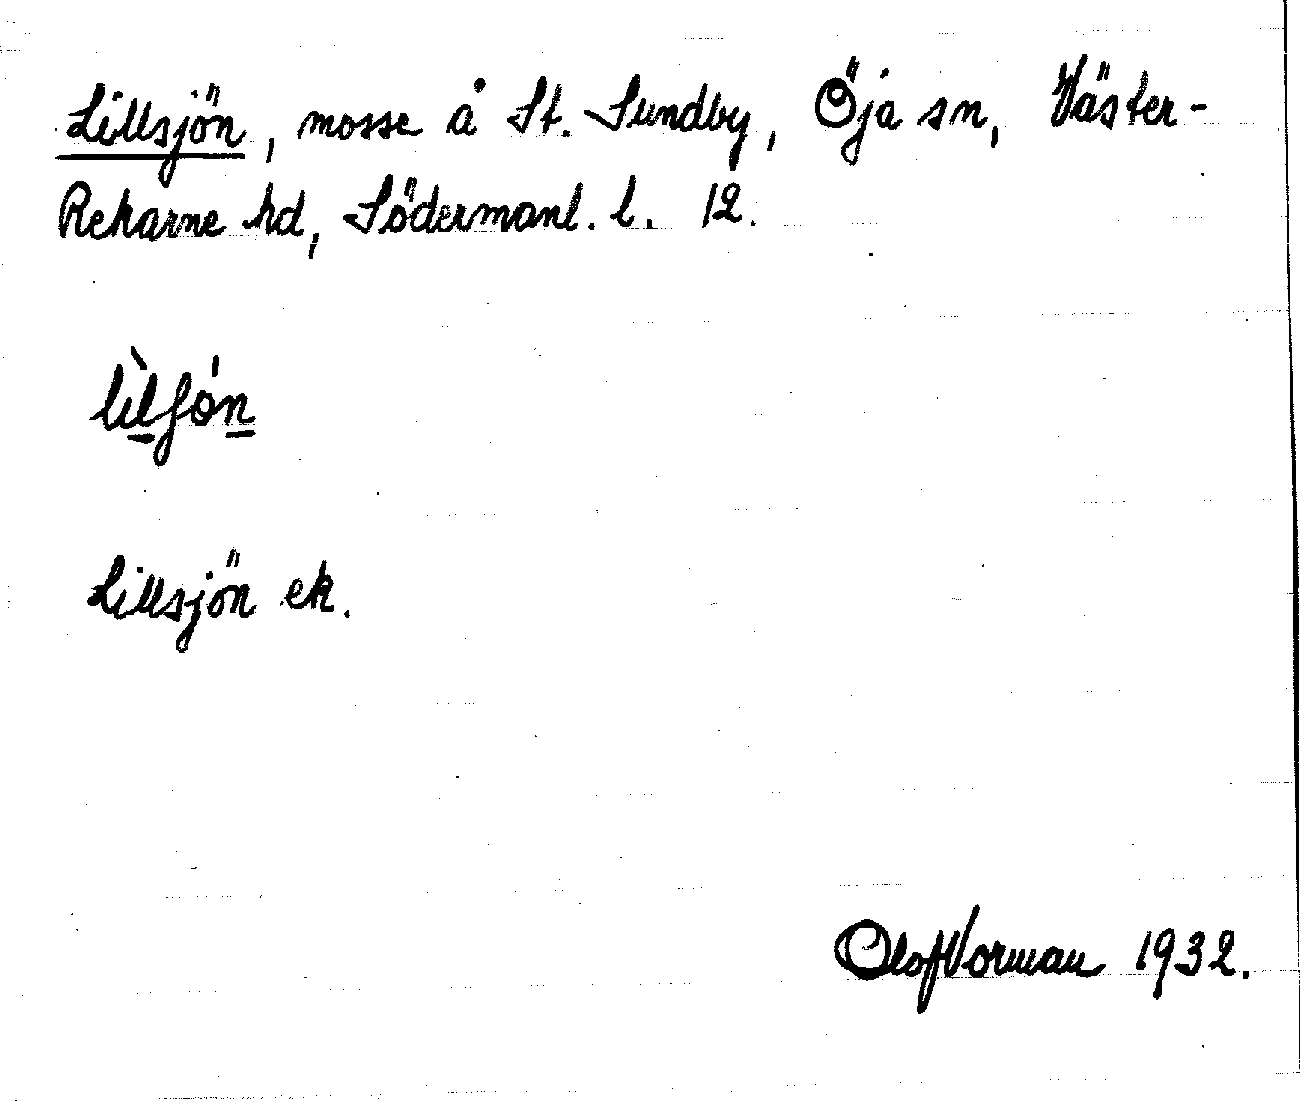 Lillsjön, mosse å St. Sundby, Öja sn, Väster-
Rekarne hd, Södermanl. l. 12.
lìlʃó̱n
Lillsjön ek.
Olof Vorman 1932.